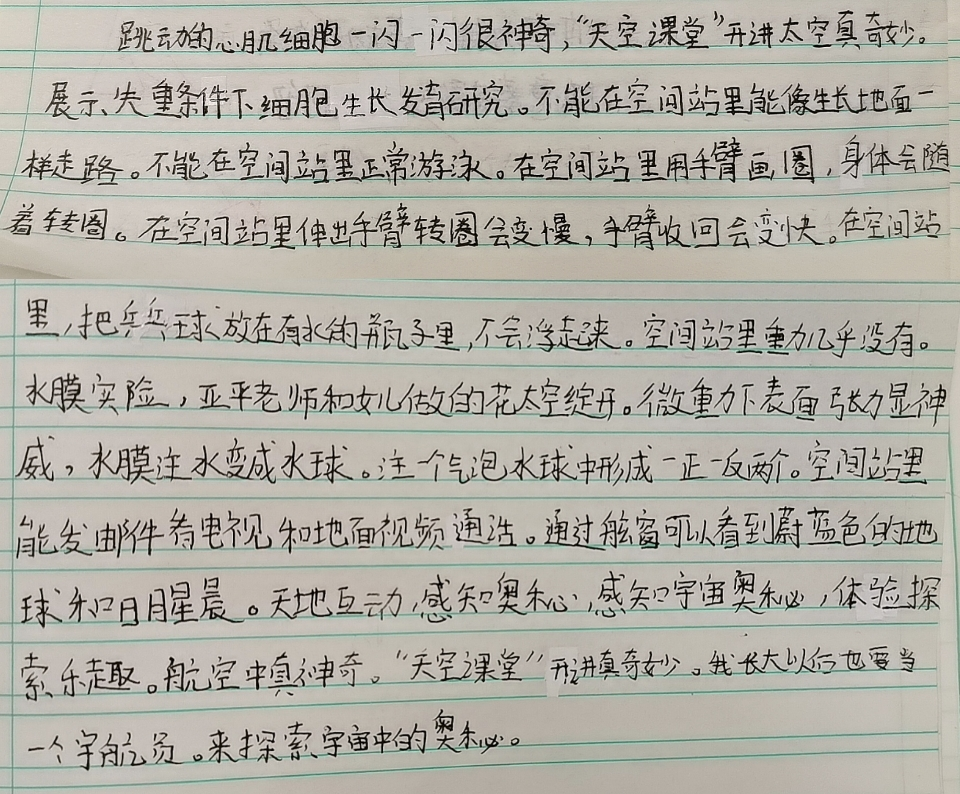 跳动的心肌细胞一闪一闪很神奇，“天空课堂”开进太空真奇妙。
展示失重条件下细胞生长发育研究。不能在空间站里能像生长地面一
样走路。不能在空间站里正常游泳。在空间站里用手臂画圈，身体会随
着转圈。在空间站里伸出手臂转圈会变慢，手臂收回会变快。在空间站
里，把乒乓球放在有水的瓶子里，不会浮起来。空间站里重力几乎没有。
水膜实险，亚平老师和女儿做的花太空绽开。微重力下表面张力显神
威，水膜注水变成水球。注一个气泡水球中形成一正一反两个。空间站里
能发邮件看电视和地面视频通话。通过舷窗可以看到蔚蓝色的地
球和日月星晨。天地互动，感知奥秘，感知宇宙奥秘，体验探
索乐趣。航空中真神奇。“天空课堂”开进真奇妙。我长大以后也要当
一个宇航员。来探索宇宙中的奥秘。